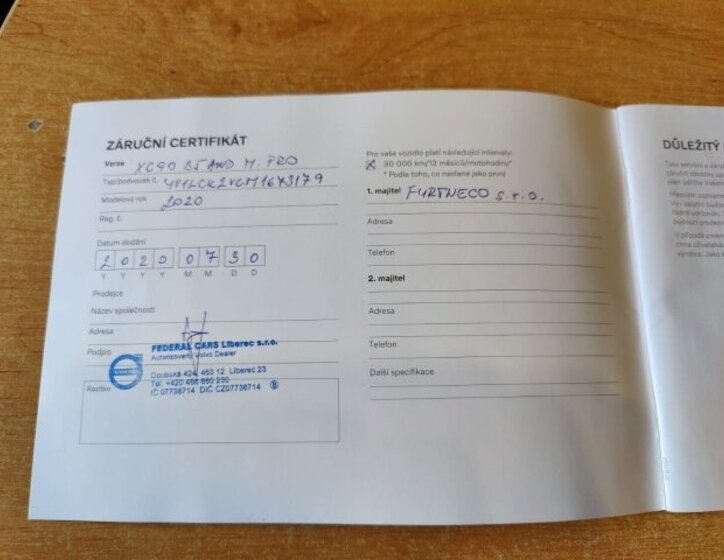 ZÁRUČNÍ CERTIFIKÁT
Verze XC90 B5 AWD M. PRO
Typ/podvozek č. YV1LCK2VCM1673179
Modelový rok 2020
Reg. č.
Datum dodání
2 0 2 0 0 7 3 0
Y Y Y Y M M D D
Prodejce
Název společnosti
Adresa
Podpis
Razítko
FEDERAL CARS Liberec s.r.o.
Autorizovaný Volvo Dealer
Doubská 424, 463 12 Liberec 23
Tel. +420
IČ 07738714 DIČ CZ07738714
Pro vaše vozidlo platí následující intervaly:
30 000 km/12 měsíců/motohodiny*
* Podle toho, co nastane jako první
1. majitel FURTNECO s.r.o.
Adresa
Telefon
2. majitel
Adresa
Telefon
Další specifikace
DŮLEŽITÝ